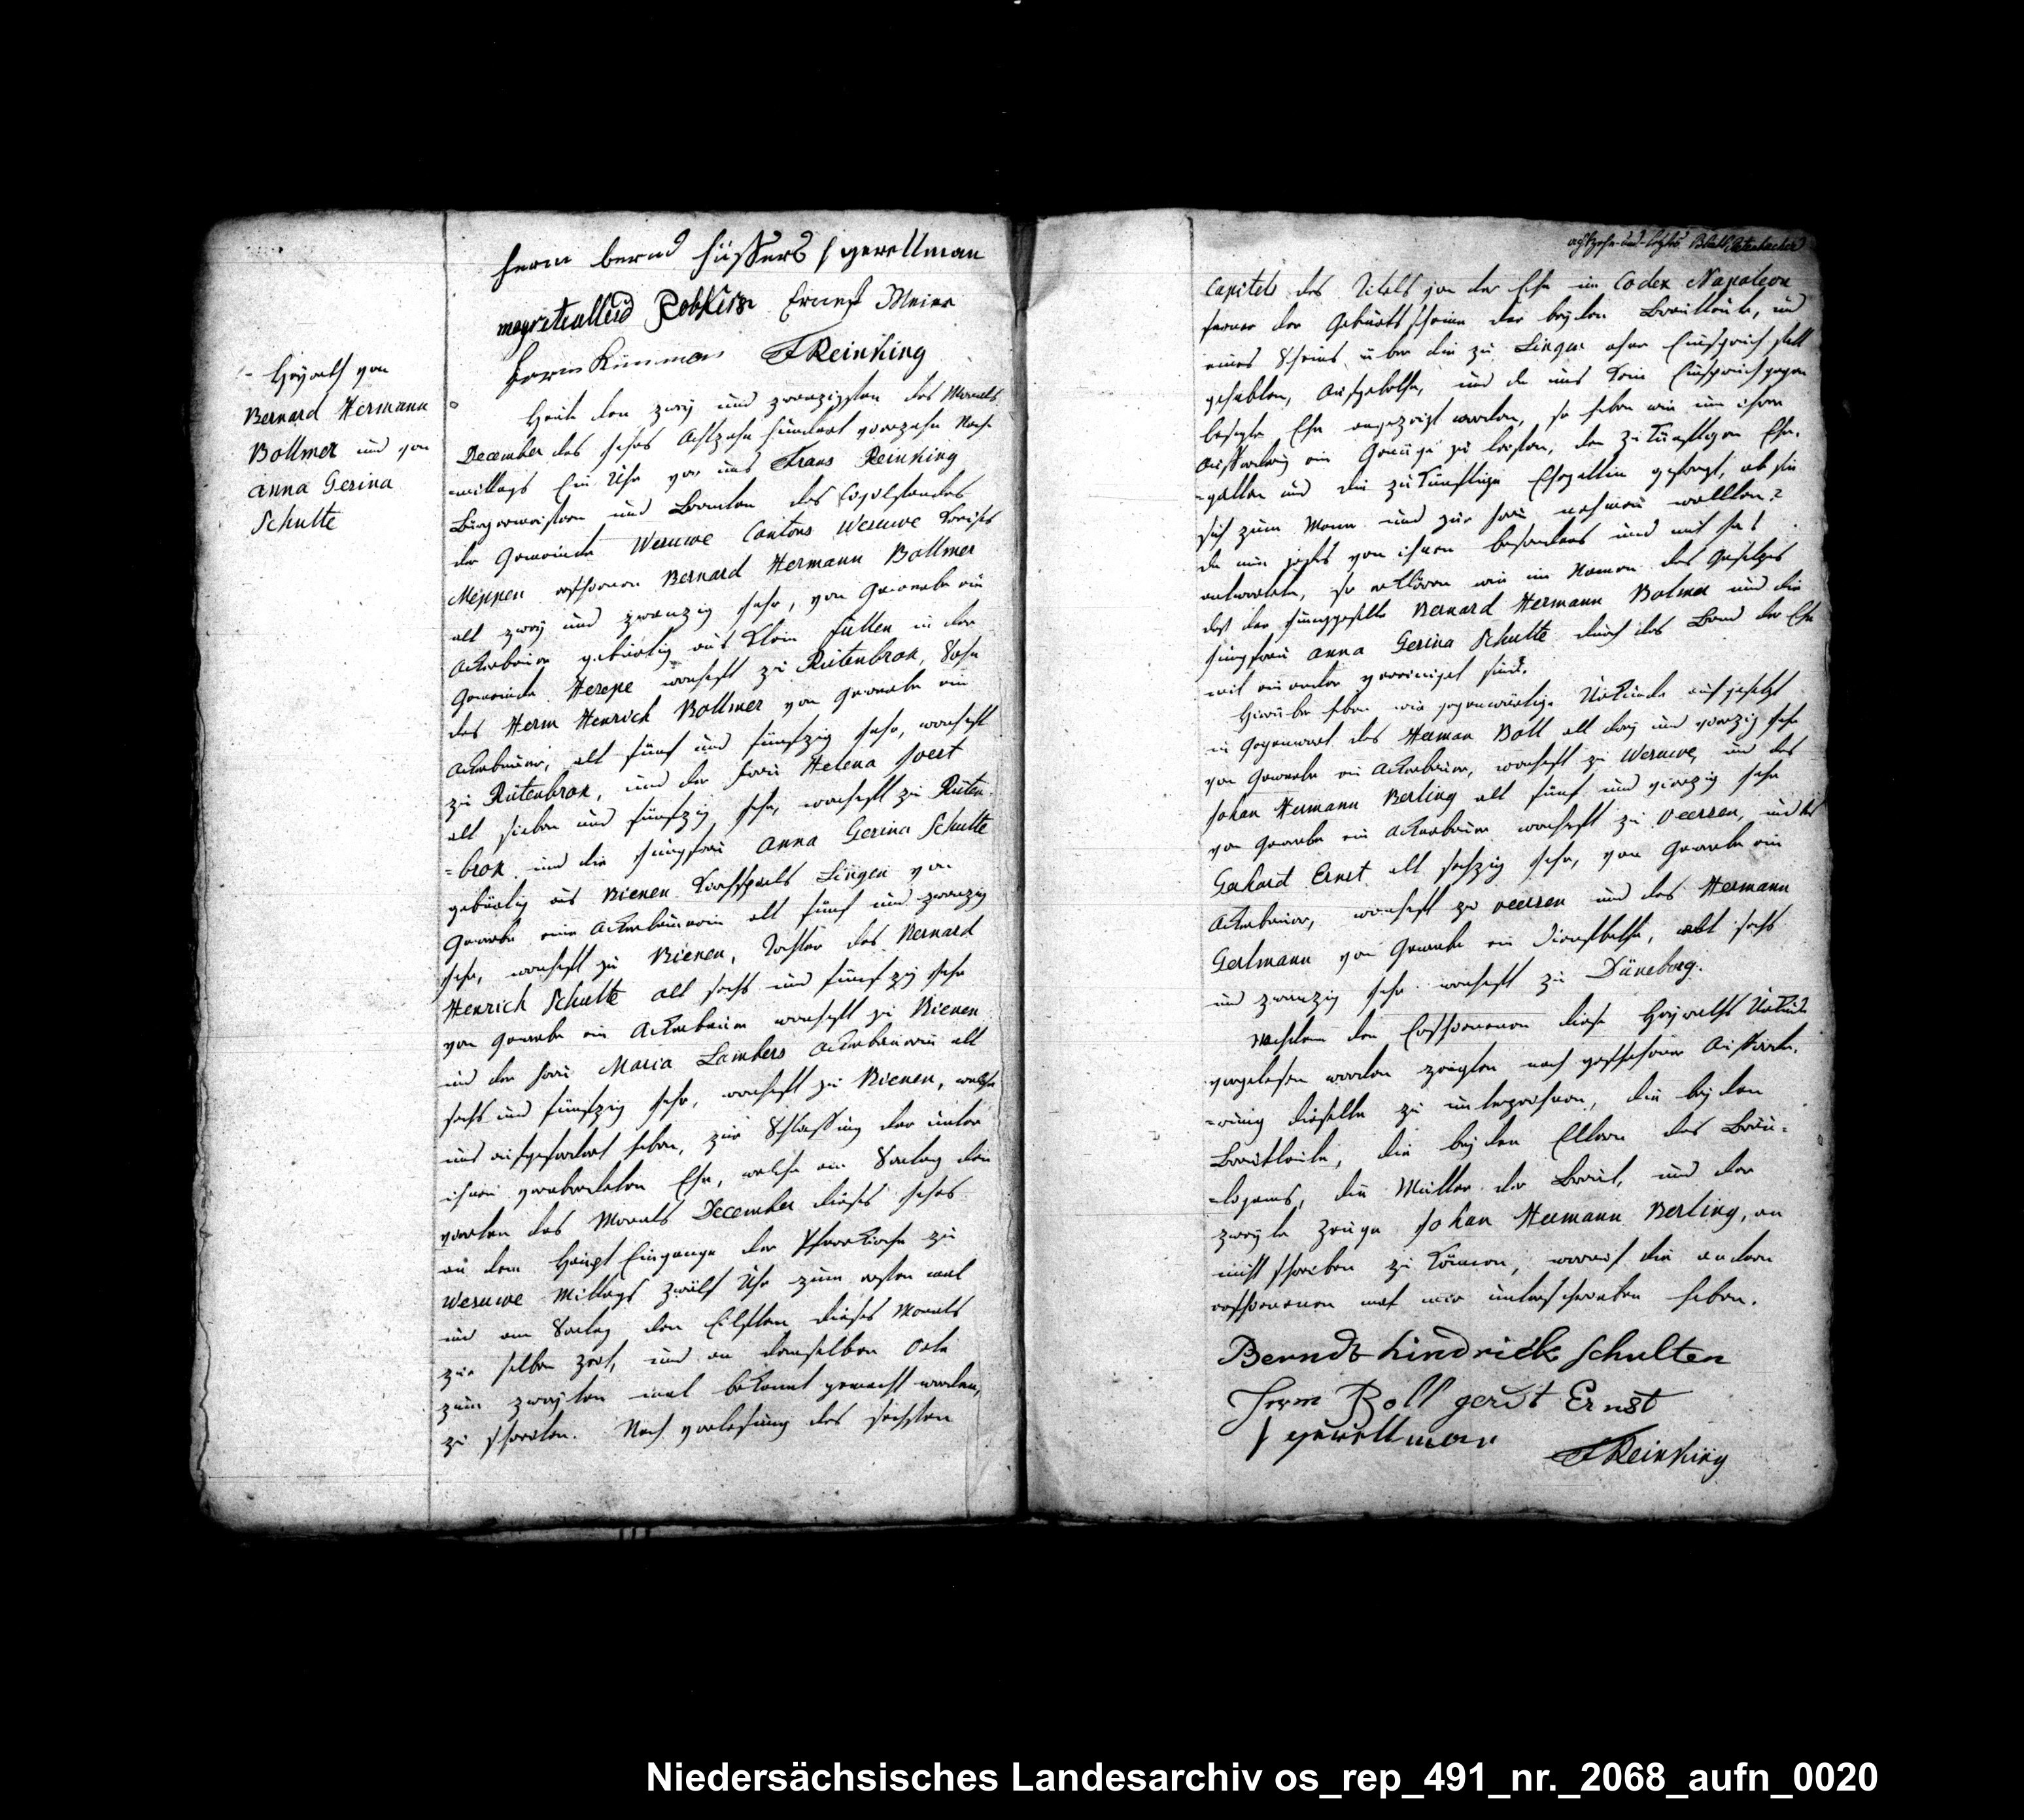 herm bernd hüssers J gerellman
Ernest Meier
herm Kümmer FReinking
Heyrath von
Bernard Hermann
Bollmer und von
Anna Gesina
Schulte
Heute den zwey und zwanzigsten des Monats
December des Jahrs Achtzehn hundert vierzehn Nach
-mittags Ein Uhr vor uns Frans Reinking
Bürgermeistern und Beamten des Civilstandes
der Gemeinde Wesuwe Cantons Wesuwe Kreises
Meppen erschienen Bernard Hermann Bollmer
alt zwey und zwanzig Jahr, von Gewerbe ein
Ackerbauer gebürtig aus Klein füllen in der
Gemeinde Herepe wohnhaft zu Rütenbrok, Sohn
des Herm Henrich Bollmer von Gewerbe ein
Ackerbauer, alt fünf und fünfzig Jahr, wohnhaft
zu Rütenbrok, und der Frau Helena
alt sieben und fünfzig Jahr, wohnhaft zu Rüten-
=brok und die Jungfrau Anna Gesina Schulte
gebürtig aus Bienen Kirchspiels Lingen von
Gewerbe eine Ackerbauerin alt fünf und zwanzig
Jahr, wohnhaft zu Bienen, Tochter des Bernard
Henrich Schulte alt sechs und fünfzig Jahr
von Gewerbe ein Ackerbauer wohnhaft zu Bienen
und der Frau Maria Lambers Ackerbauerin alt
sechs und fünfzig Jahr, wohnhaft zu Bienen, welche
uns aufgefordert haben, zur Schliessung der unter
ihnen verabredeten Ehe, welche am Sontag den
vierten des Monats December dieses Jahrs
an dem Haupt Eingange der Pfarrkirche zu
Wesuwe Mittags zwölf Uhr zum ersten mal
und am Sontag den Eilften dieses Monats
zur selben Zeit, und an demselben Orte
zum zweyten mal bekannt gemacht worden,
zu schreiten. Nach vorlesung des sechsten
achtzehn und letztes Blatt
Capitels des Titels von der Ehe im Codex Napoleon
ferner der Geburtsscheine der beyden Brautleute, und
eines Scheins über die zu Lingen ohne Einspruch statt
gehabten, Aufgebothe, und da uns kein Einspruch gegen
besagte Ehe angezeigt worden, so haben wir um ihrer
Aufforderung ein Genüge zu leisten, den zukünftigen Ehe-
-gatten und die zukünftige Ehegattin gefragt, ob sie
sich zum Mann und zur Frau nehmen wollten?
da nun jedes von ihnen besonders und mit ja!
antwortete, so erklären wir im Namen des Gesetzes
daß der Junggeselle Bernard Hermann Bolmer und die
Jungfrau Anna Gesina Schulte durch das Band der Ehe
mit einander vereiniget sind.
Hierüber haben wir gegenwärtige Urkunde aufgesetzt
in Gegenwart des Herman Böll alt drey und vierzig Jahr
von Gewerbe ein Ackerbauer, wohnhaft zu Wesuwe, und des
Johan Hermann Berling alt fünf und vierzig Jahr
von Gewerbe ein Ackerbauer wohnhaft zu Veersen, und des
Gerhard Ernst alt sechzig Jahr, von Gewerbe ein
Ackerbauer, wohnhaft zu Veersen und des Hermann
Gerlmann von Gewerbe ein Dienstbothe, alt sechs
und zwanzig Jahr wohnhaft zu Düneborg.
Nachdem den Erschienenen diese Heyraths Urkunde
vorgelesen worden zeigten nach geschehener Aufforde-
-rung dieselbe zu unterzeichnen, die beyden
Brautleute, die beyden Eltern des Bräu-
-tigams, die Mutter der Braut, und der
zweyte Zeuge Johan Hermann Berling, an
nicht schreiben zu können, worauf die andern
erschienenen mit mir unterschrieben haben.
Berndt hindrick Schulten
Herm Boll gerdt Ernst
J gerellman
FReinking
Niedersächsisches Landesarchiv os_rep_491_nr._2068_aufn_0020